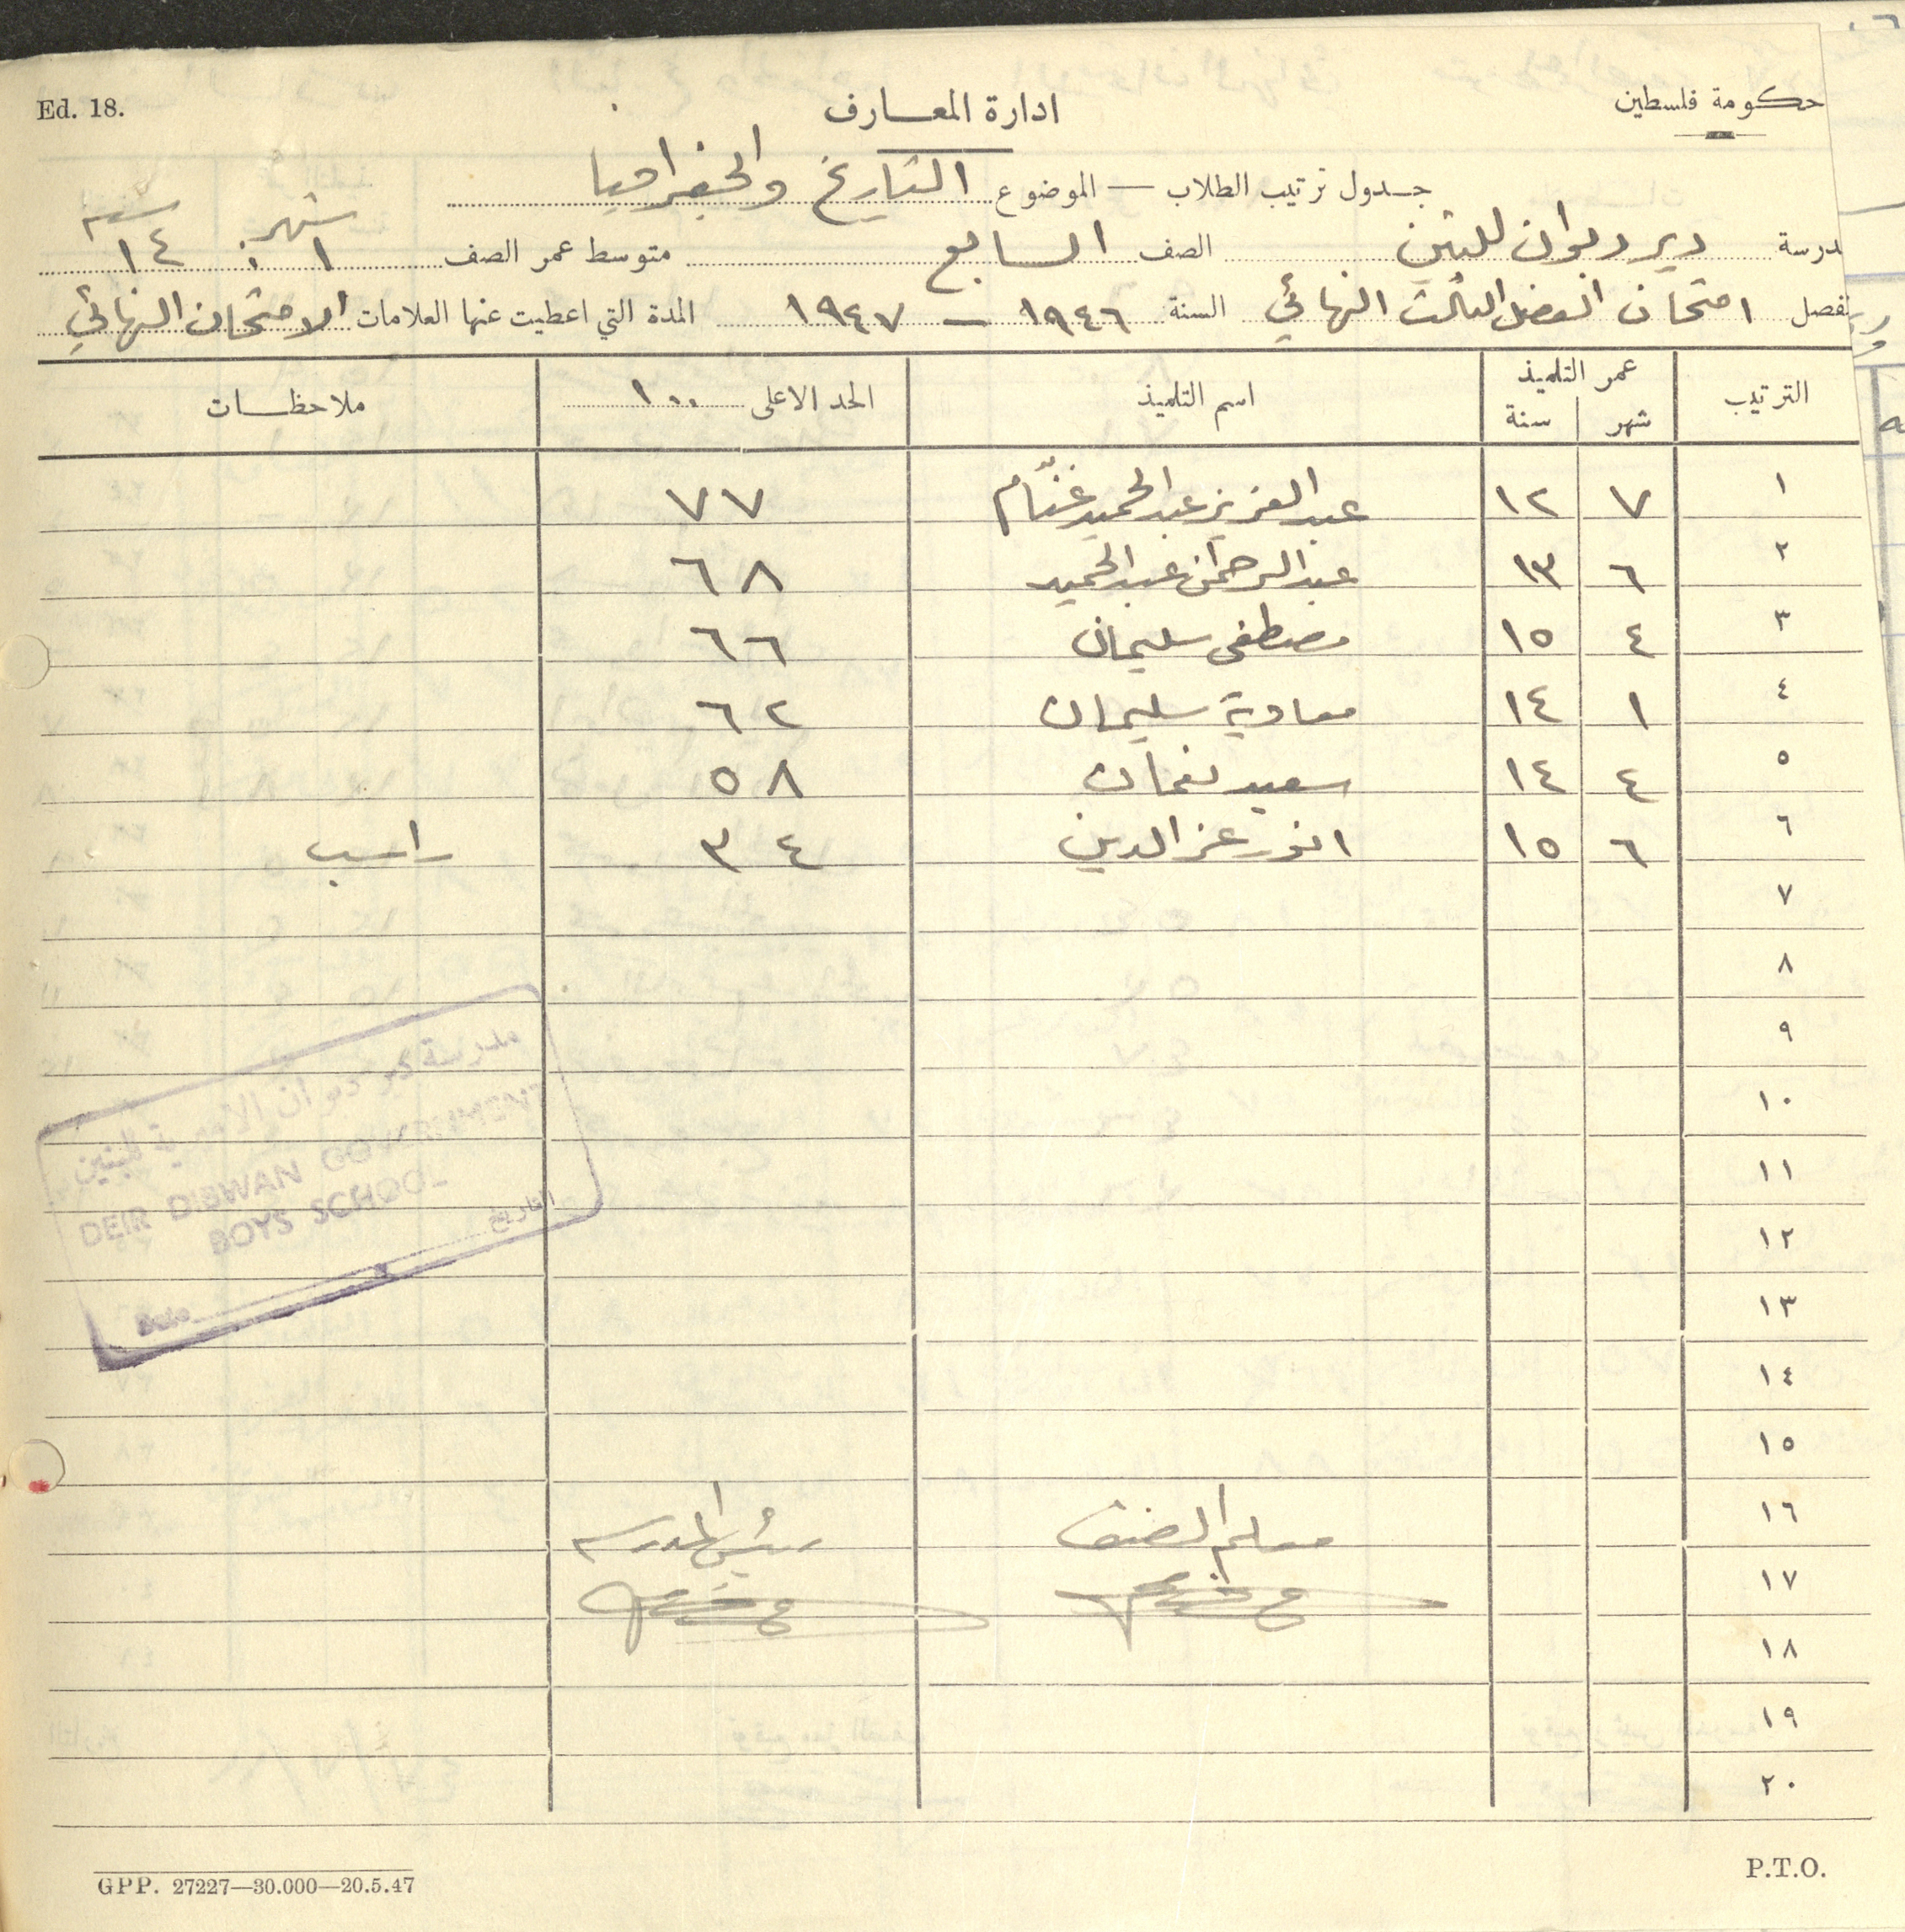 Ed. 18.
حكومة فلسطين
ادارة المعارف
جدول ترتيب الطلاب — الموضوع التاريخ والجغرافيا
درسة دير ديوان للبنين الصف السابع متوسط عمر الصف ١ شهر : ١٤ سنه
فصل امتحان الفصل الثالث النهائي السنة ١٩٤٦ – ١٩٤٧ المدة التي اعطيت عنها العلامات الامتحان النهائي
الترتيب عمر التلميذ شهر سنة اسم التلميذ الحد الاعلى ١٠٠ ملاحظات
١ ٧ ١٢ عبد العزيز عبد الحميد غنّام ٧٧
٢ ٦ ١٣ عبد الرحمن عبد الحميد ٦٨
٣ ٤ ١٥ مصطفى سليمان ٦٦
٤ ١ ١٤ معاوية سليمان ٦٢
٥ ٤ ١٤ سعيد نعمان ٥٨
٦ ٦ ١٥ انور عز الدين ٣٤ راسب
٧
٨
٩
١٠
١١
١٢
١٣
١٤
١٥
١٦
١٧
١٨
١٩
٢٠
مدرسة دير ديوان الاميرية للبنين
DEIR DIBWAN GOVERNMENT
BOYS SCHOOL
التاريخ
Date
معلم الصف رئيس المدرسه
GPP. 27227—30.000—20.5.47
P.T.O.